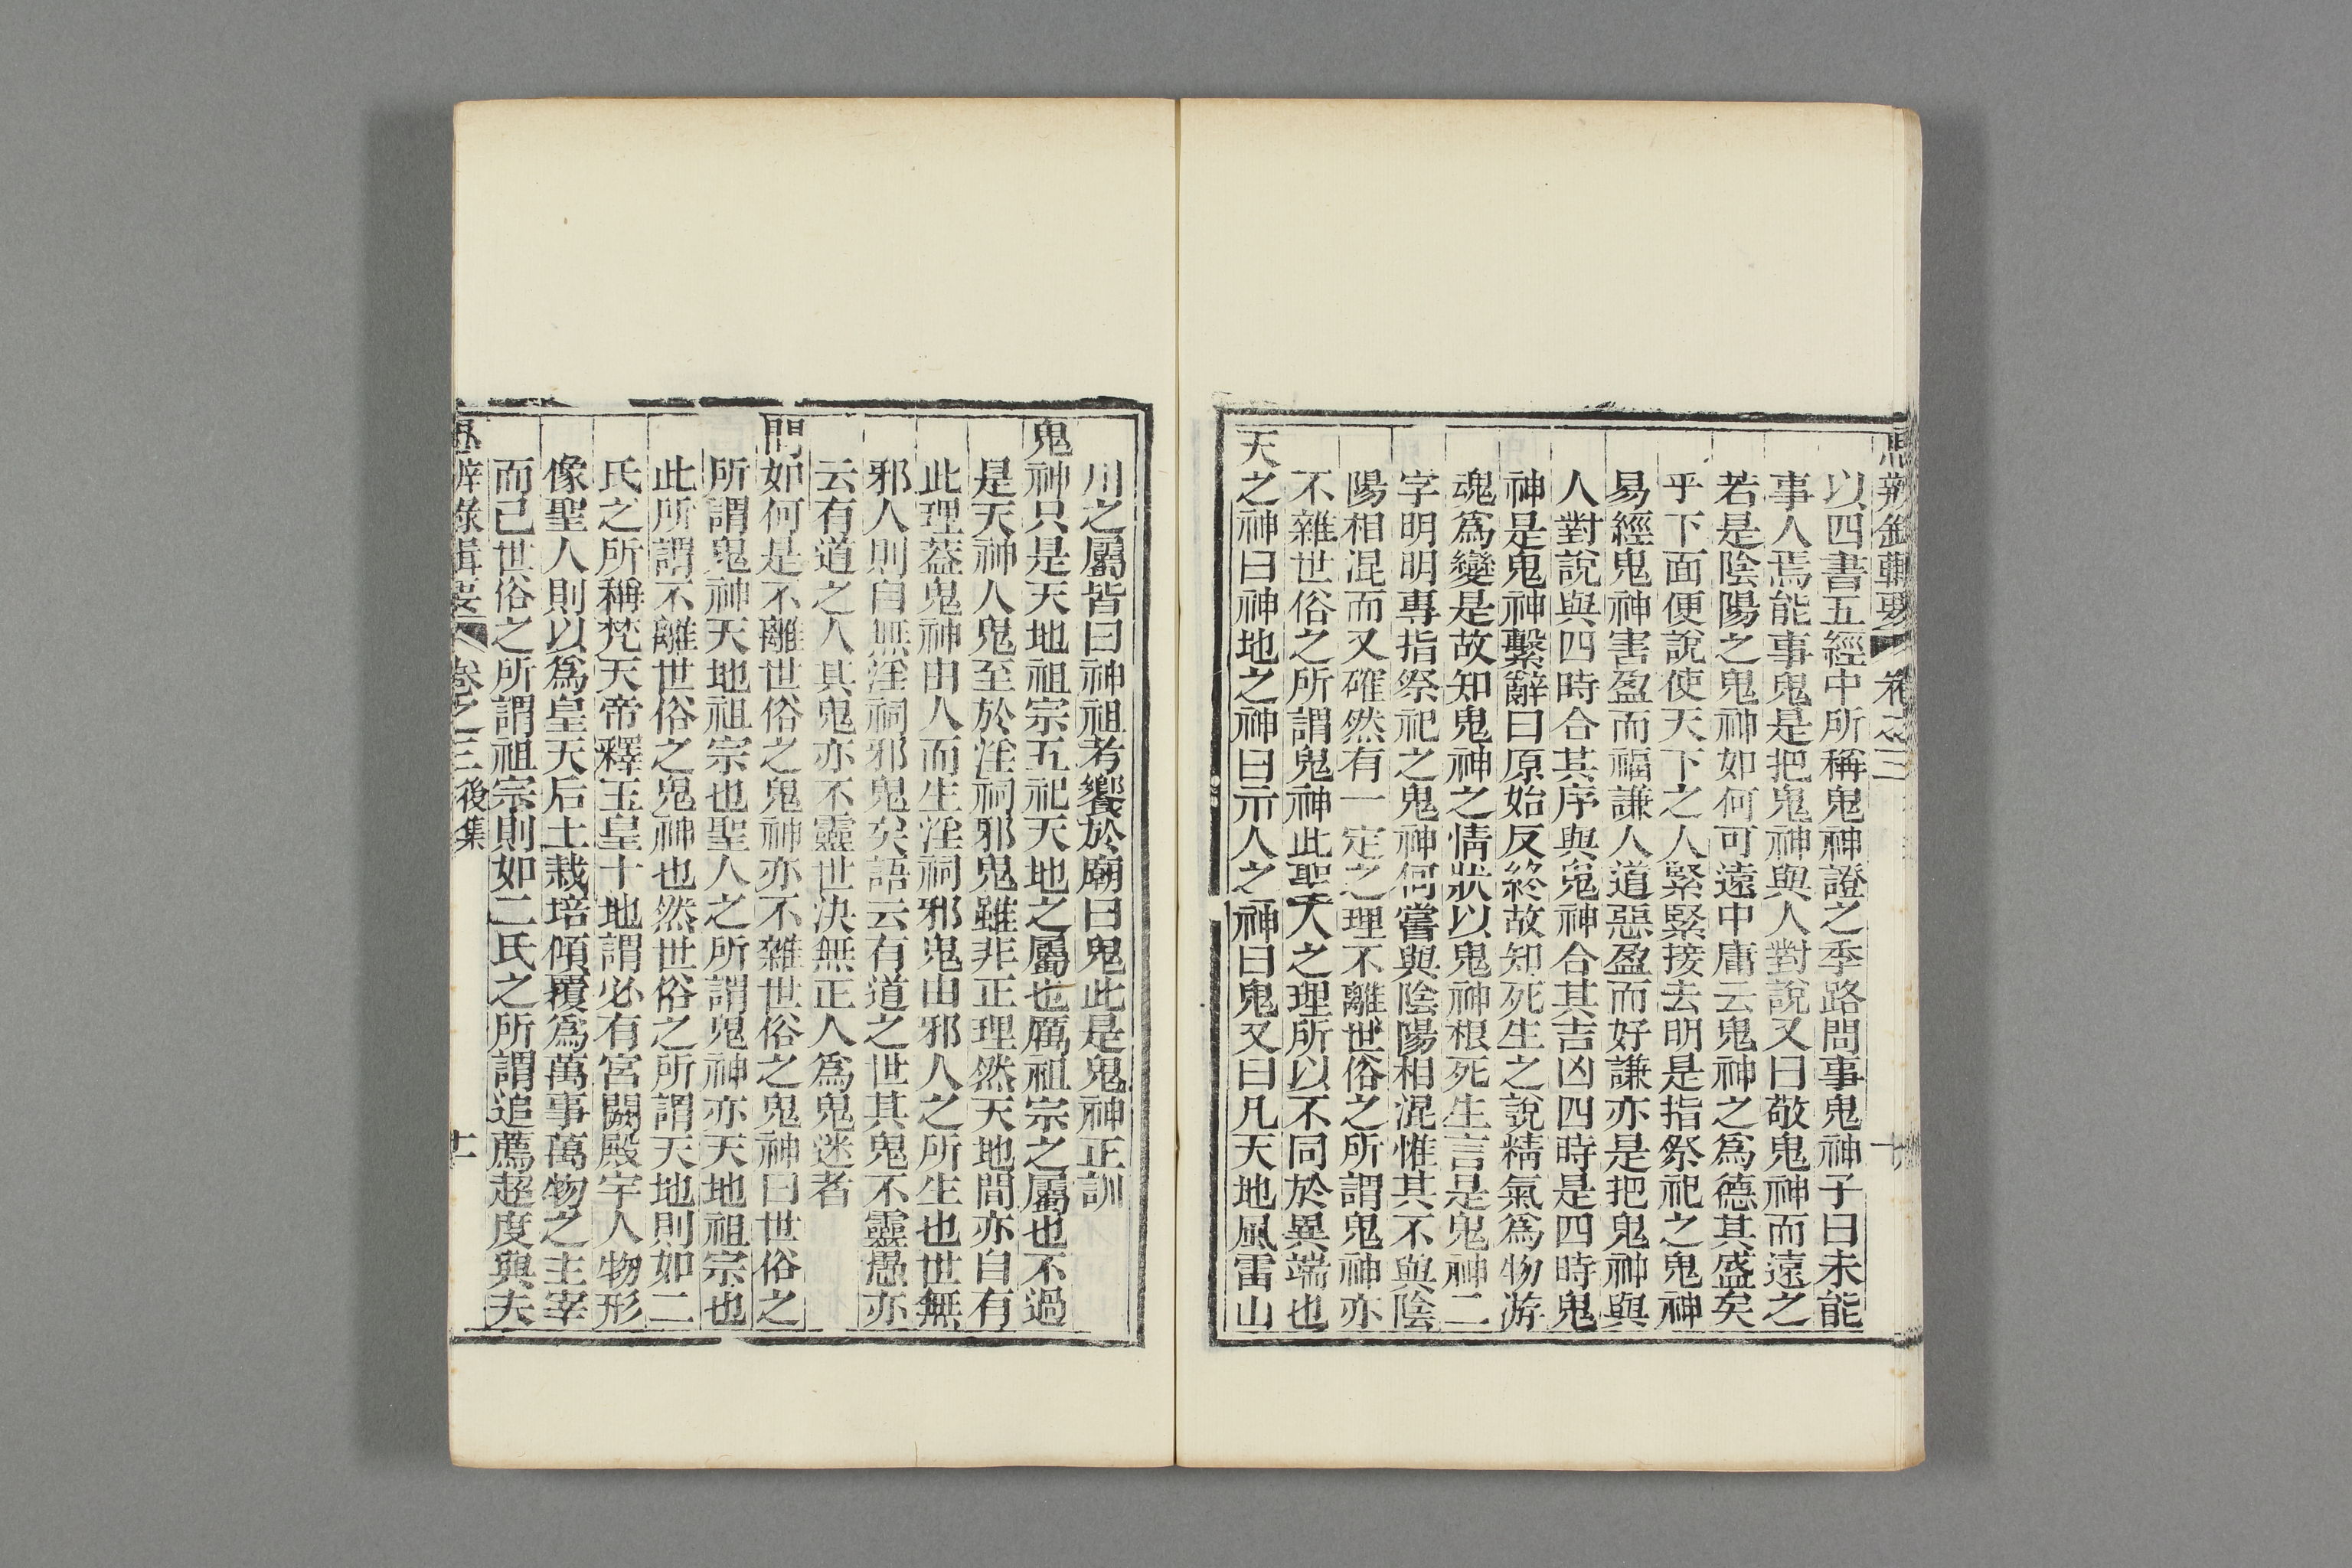 思辨錄輯要 卷之三
以四書五經中所稱鬼神證之季路問事鬼神子曰未能
事人焉能事鬼是把鬼神與人對說又曰敬鬼神而遠之
若是陰陽之鬼神如何可遠中庸云鬼神之爲德其盛矣
乎下面便說使天下之人緊緊接去明是指祭祀之鬼神
易經鬼神害盈而福謙人道惡盈而好謙亦是把鬼神與
人對說與四時合其序與鬼神合其吉凶四時是四時鬼
神是鬼神繫辭曰原始反終故知死生之說精氣爲物游
魂爲變是故知鬼神之情狀以鬼神根死生言是鬼神二
字明明專指祭祀之鬼神何嘗與陰陽相混惟其不與陰
陽相混而又確然有一定之理不離世俗之所謂鬼神亦
不雜世俗之所謂鬼神此聖人之理所以不同於異端也
天之神曰神地之神曰示人之神曰鬼又曰凡天地風雷山
川之屬皆曰神祖考饗於廟曰鬼此是鬼神正訓
鬼神只是天地祖宗五祀天地之屬也厲祖宗之屬也不過
是天神人鬼至於淫祠邪鬼雖非正理然天地間亦自有
此理葢鬼神由人而生淫祠邪鬼由邪人之所生也世無
邪人則自無淫祠邪鬼矣語云有道之世其鬼不靈愚亦
云有道之人其鬼亦不靈世決無正人爲鬼迷者
問如何是不離世俗之鬼神亦不雜世俗之鬼神曰世俗之
所謂鬼神天地祖宗也聖人之所謂鬼神亦天地祖宗也
此所謂不離世俗之鬼神也然世俗之所謂天地則如二
氏之所稱梵天帝釋玉皇十地謂必有宮闕殿宇人物形
像聖人則以爲皇天后土栽培傾覆爲萬事萬物之主宰
而已世俗之所謂祖宗則如二氏之所謂追薦超度與夫
思辨錄輯要 卷之三 後集 十一